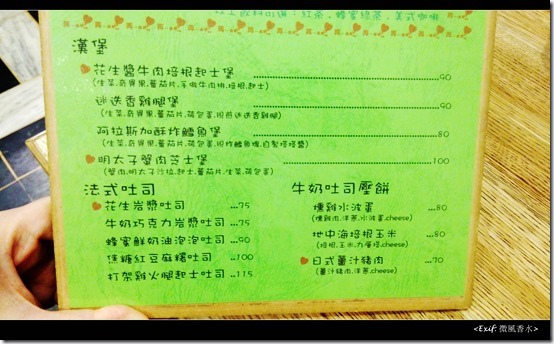 以上飲料可選：紅茶、蜂蜜綠茶、美式咖啡
漢堡
花生醬牛肉培根起士堡 ........90
(生菜.奇異果.蕃茄片.手做牛肉排.培根.起士)
迷迭香雞腿堡 ........90
(生菜.奇異果.蕃茄片.荷包蛋.現煎迷迭香雞腿)
阿拉斯加酥炸鱈魚堡 ........80
明太子蟹肉芝士堡 ........100
(蟹肉.明太子沙拉.起士.蕃茄片.生菜.荷包蛋)
法式吐司
花生岩漿吐司 ...75
牛奶巧克力岩漿吐司 ...75
蜂蜜鮮奶油泡泡吐司 ...90
焦糖紅豆麻糬吐司 ..100
打架雞火腿起士吐司 ..115
牛奶吐司壓餅
燻雞水波蛋 ...80
(燻雞肉.洋蔥.水波蛋.cheese)
地中海培根玉米 ...80
日式薑汁豬肉 ...70
(薑汁豬肉.洋蔥.cheese)
<Exif: 微風香水>